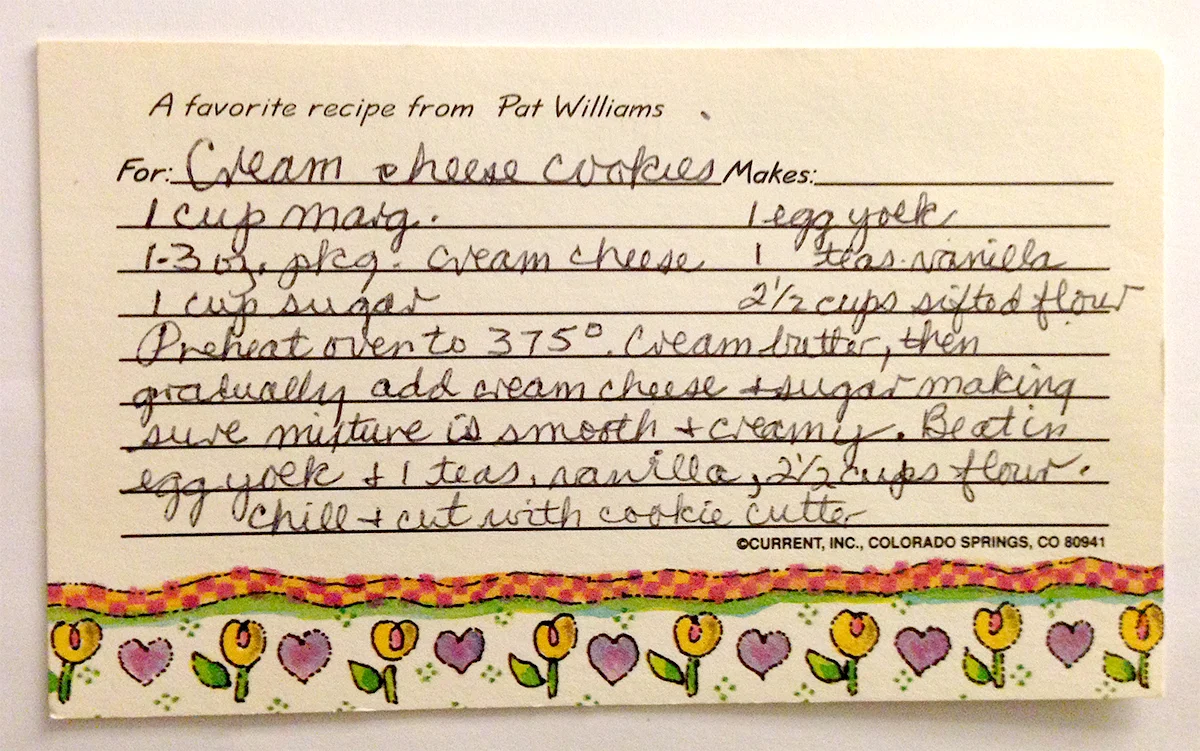 A favorite recipe from Pat Williams
For: Cream cheese cookies Makes:
1 cup marg. 1 egg yoek
1-3 oz. pkg. cream cheese 1 teas. vanilla
1 cup sugar 2 1/2 cups sifted flour
Preheat oven to 375°. Cream butter, then
gradually add cream cheese + sugar making
sure mixture is smooth + creamy. Beat in
egg yoek + 1 teas. vanilla, 2 1/2 cups flour.
Chill + cut with cookie cutter
©CURRENT, INC., COLORADO SPRINGS, CO 80941